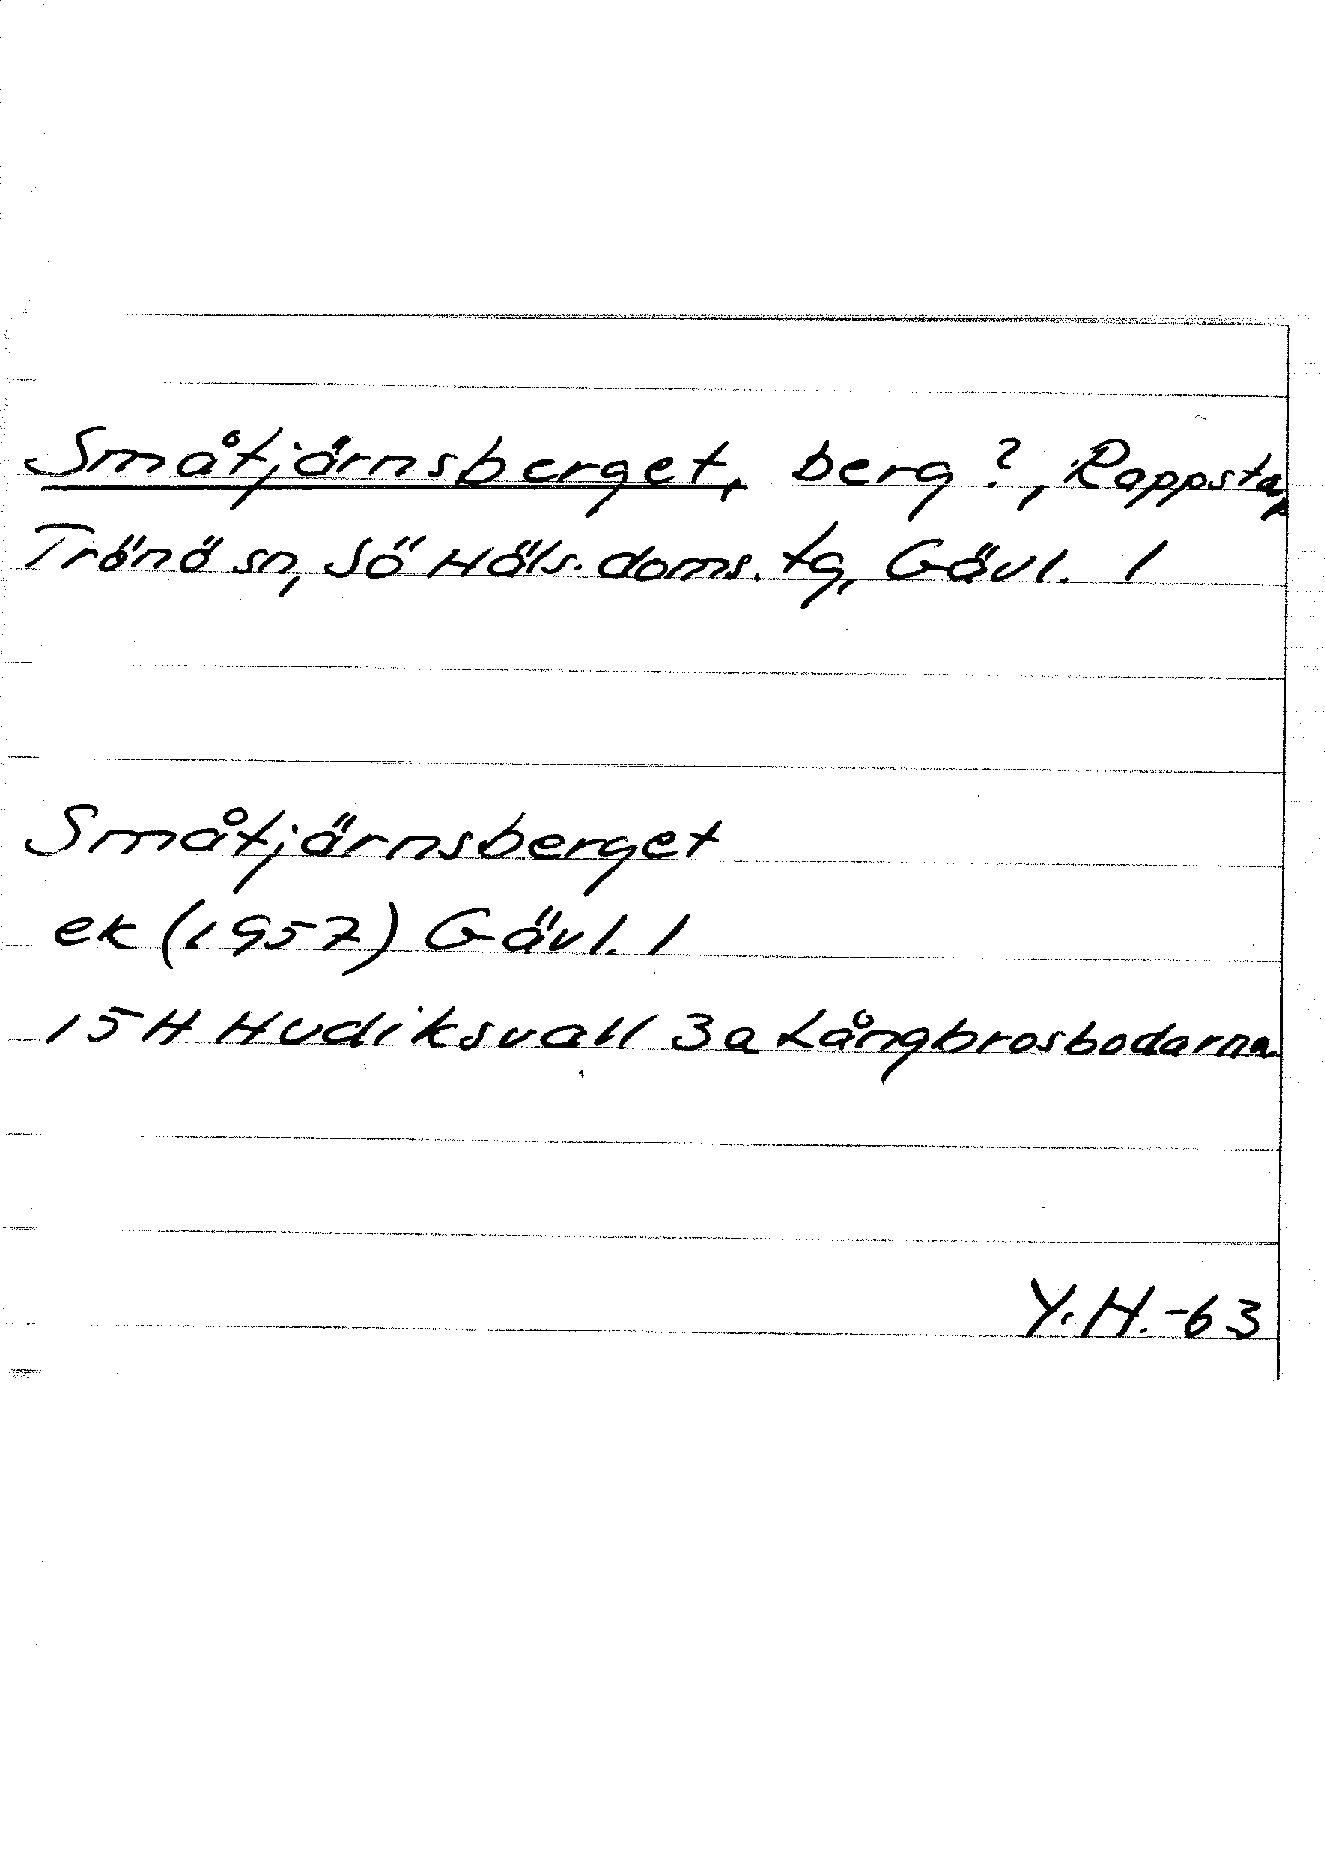 Småtjärnsberget, berg?, Rappsta,
Trönö sn, Sö Häls. doms. tg, Gävl. l
Småtjärnsberget
ek (1957) Gävl. l
15H Hudiksvall 3a Långbrosbodarna
Y.H.-63